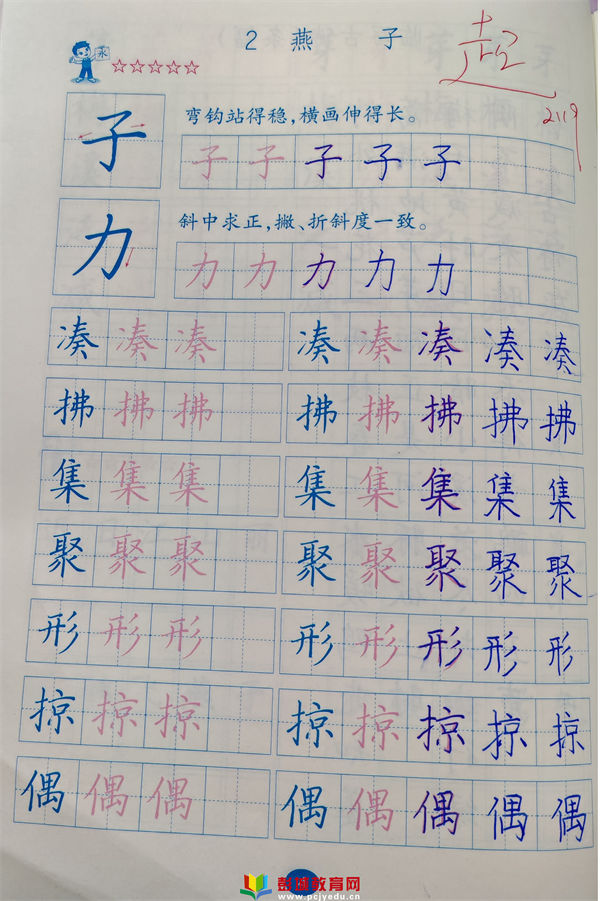 2 燕 子
超
永
2.19
子 弯钩站得稳，横画伸得长。
子 子 子 子 子
力 斜中求正，撇、折斜度一致。
力 力 力 力 力
凑 凑 凑 凑 凑 凑 凑 凑
拂 拂 拂 拂 拂 拂 拂 拂
集 集 集 集 集 集 集 集
聚 聚 聚 聚 聚 聚 聚 聚
形 形 形 形 形 形 形 形
掠 掠 掠 掠 掠 掠 掠 掠
偶 偶 偶 偶 偶 偶 偶 偶
彭城教育网
www.pcjyedu.cn